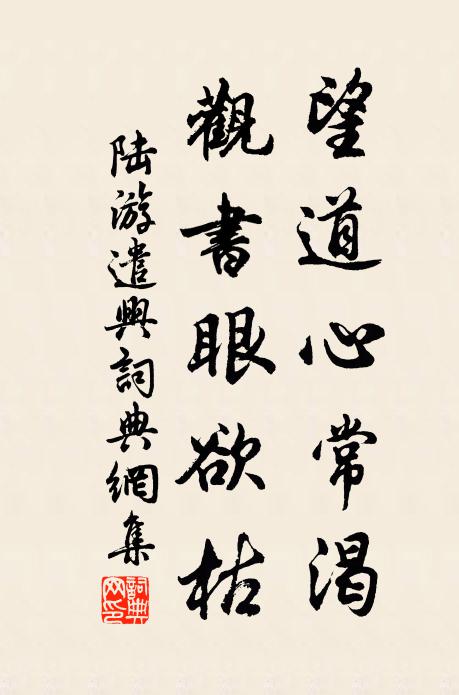 望道心常渴
觀書眼欲枯
陸游遣興詞典網集
詞典網印